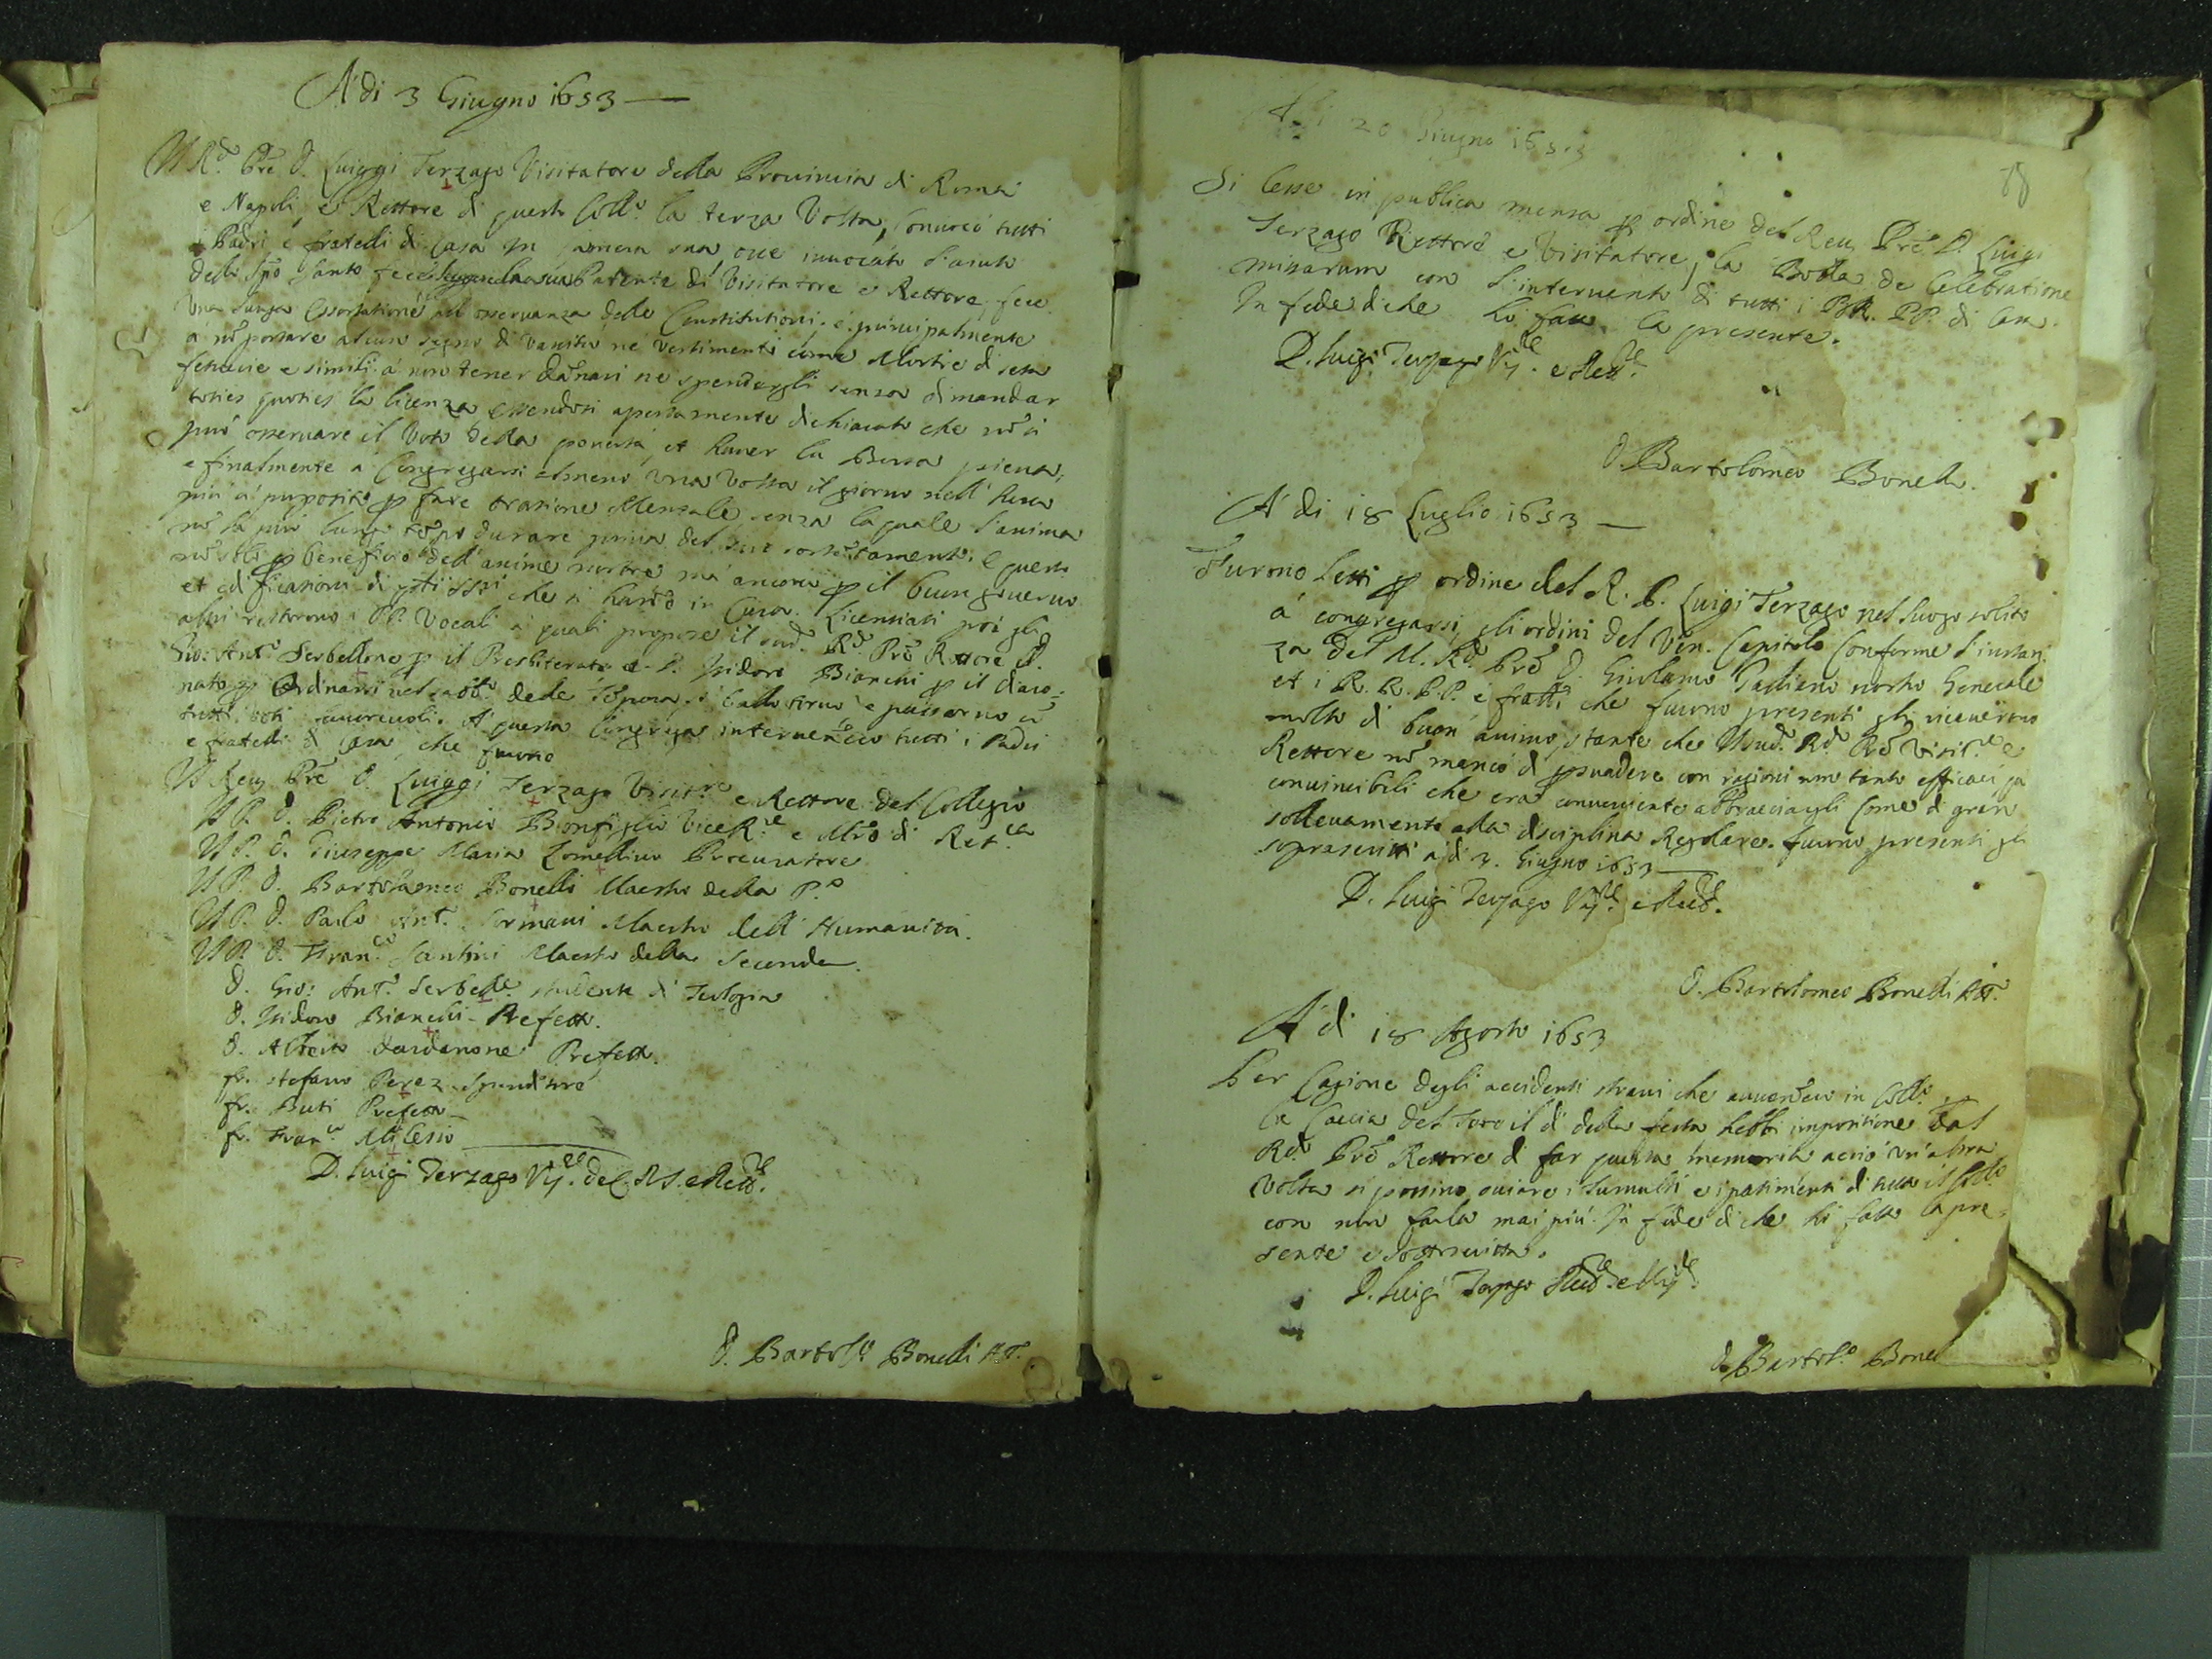 A' di 3 Giugno 1653
Il R.do Pre D. Luiggi Terzago Visitatore della Prouincia di Roma
e Napoli, e Rettore di questo Coll.o la terza Volta, conuocò tutti
i Padri, e fratelli di casa in camera sua, oue inuocato l'aiuto
dello Spo Santo fece leggere la sua Patente di Visitatore e Rettore, fece
Una lunga Essortatione all'osseruanza delle Constitutioni, e principalmente
a nō portare alcun segno di Vanità ne Vestimenti come Mostre di seta
fetuccie e simili: a non tener danari ne spendergli senza dimandar
toties quoties la licenza essendosi apertamente dichiarato che nō si
può osseruare il Voto della pouertà, et hauer la Borsa piena;
e finalmente a Congregarsi almeno Una Volta il giorno nell' hora
più a proposito ꝑ fare oratione Mentale senza la quale l'anima
nō la può lungo tēpo durare priua del suo sostētamento. E questo
nō solo ꝑ beneficio dell'anime nostre mà ancora ꝑ il buon gouerno
et edificatione di che si hanno in Cura. Licentiati poi gli
altri restorono i PP. Vocali a quali propose il sud.o R.do Pre Rettore D.
Gio: Ant.o Serbellone ꝑ il Presbiterato e D. Isidoro Bianchi ꝑ il diaco=
nato ꝑ Ordinarsi nel sab.o delle Tēpora, si ballottorno e passorno cō
tutti voti fauoreuoli. A questa Congrega interuenero tutti i Padri
e fratelli di casa che furono
Il Reu. Pre D. Luiggi Terzago Visit.re e Rettore del Collegio
Il P. D. Pietro Antonio Bonfiglio Vice R.re e Mro di Ret.ca
Il P. D. Giuseppe Maria Lomellino Procuratore
Il P. D. Bartolameo Bonelli Maestro della P.a
Il P. D. Paolo Ant.o Sormani Maestro dell' Humanità.
Il P. D. Fran.co Santini Maestro della Seconda
D. Gio: Ant.o Serbell.e studente di Teologia
D. Isidoro Bianchi Prefetto.
D. Alberto Dardanone Prefetto.
fr. Stefano Perez Spenditore
fr. Buti Prefetto
fr. Fran.co Milesio
D. Luigi Terzago Vis.re del R.S. e Rett.re
D. Bartol.o Bonelli Att.
A di 20 Giugno 1653
Si lesse in publica mensa ꝑ ordine del Reu. Pre D. Luigi
Terzago Rettore e Visitatore, la Bolla de Celebratione
missarum con l'interuento di tutti i RR. PP. di casa.
In fede di che ho fatto la presente.
D. Luigi Terzago Vis.re e Rett.re
D. Bartolomeo Bonelli.
A' di 18 Luglio 1653
Furono letti ꝑ ordine del R. P. Luigi Terzago nel luogo solito
a congregarsi, gli ordini del Ven. Capitolo Conforme l'instan
za del M. R.do Pre D. Girolamo Galliano nostro Generale
et i R. R. P. P. e fratti che furono presenti gli riceuerono
molto di buon animo, stante che Il sud.o R.do Pre Visit.re e
Rettore nō mancò di ꝑsuadere con ragioni non tanto efficaci, ma
conuincibili che era conueniente abbracciargli come di gran
solleuamento alla disciplina Regolare. furono presenti gli
soprascritti a' di 3. Giugno 1653
D. Luigi Terzago Vis.re e Rett.re
D. Bartolomeo Bonelli Att.
A' di 18 Agosto 1653
Per Cagione degli accidenti strani che auuenero in Coll.o
la Caccia del Toro il di della festa hebbi impositione dal
R.do Pre Rettore di far questa memoria acciò un' altra
Volta si possino ouiare i tumulti e i patimenti di tutto il Coll.o
con non farla mai più. In fede di che hò fatto la pre=
sente e sottoscritta.
D. Luigi Terzago Rett.re e Vis.re
D. Bartol.o Bonel